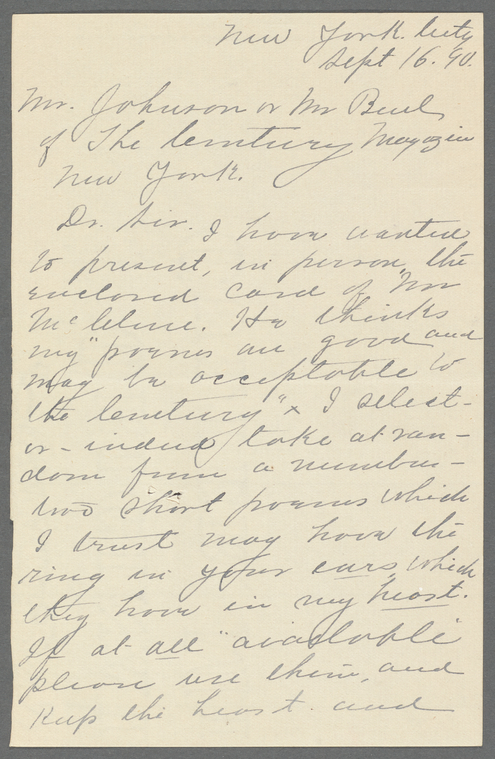 New York. City
Sept 16. 90.
Mr. Johnson or Mr Buel
of The Century Magazine
New York.
Dr. Sir. I have wanted
to present, in person, the
enclosed card of "Mr
McClure. He thinks
my "poems are good and
may be acceptable to
the Century" x I select-
or - indeed take at ran-
dom from a number -
two short poems which
I trust may have the
ring in your ears, which
they have in my heart.
If at all "available"
please use them, and
keep the heart. and